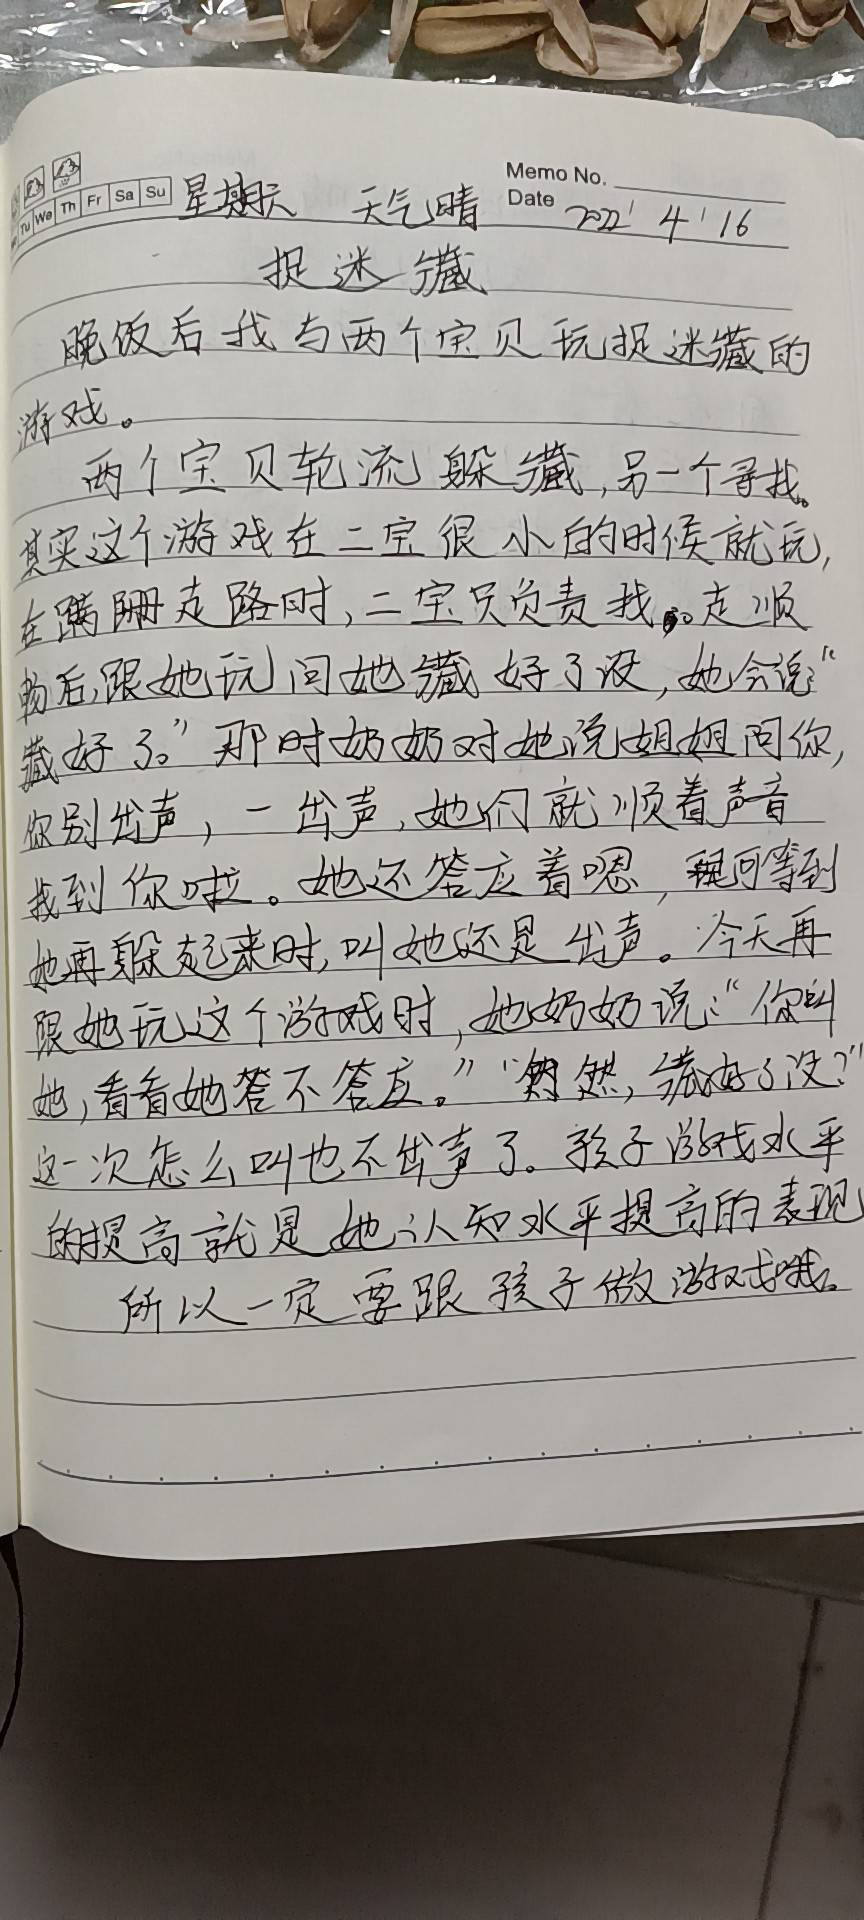 Memo No.
Tu We Th Fr Sa Su 星期天 天气晴 Date 2022 4 16
捉迷藏
晚饭后我与两个宝贝玩捉迷藏的
游戏。
两个宝贝轮流躲藏,另一个寻找。
其实这个游戏在二宝很小的时候就玩,
在蹒跚走路时,二宝只负责找。走顺
畅后,跟她玩问她藏好了没,她会说:“
藏好了。”那时奶奶对她说姐姐问你,
你别出声,一出声,她们就顺着声音
找到你啦。她还答应着嗯,可等到
她再躲起来时,叫她还是出声。今天再
跟她玩这个游戏时,她奶奶说:“你叫
她,看看她答不答应。”“然,藏好了没?”
这一次怎么叫也不出声了。孩子游戏水平
的提高就是她认知水平提高的表现
所以一定要跟孩子做游戏哦。